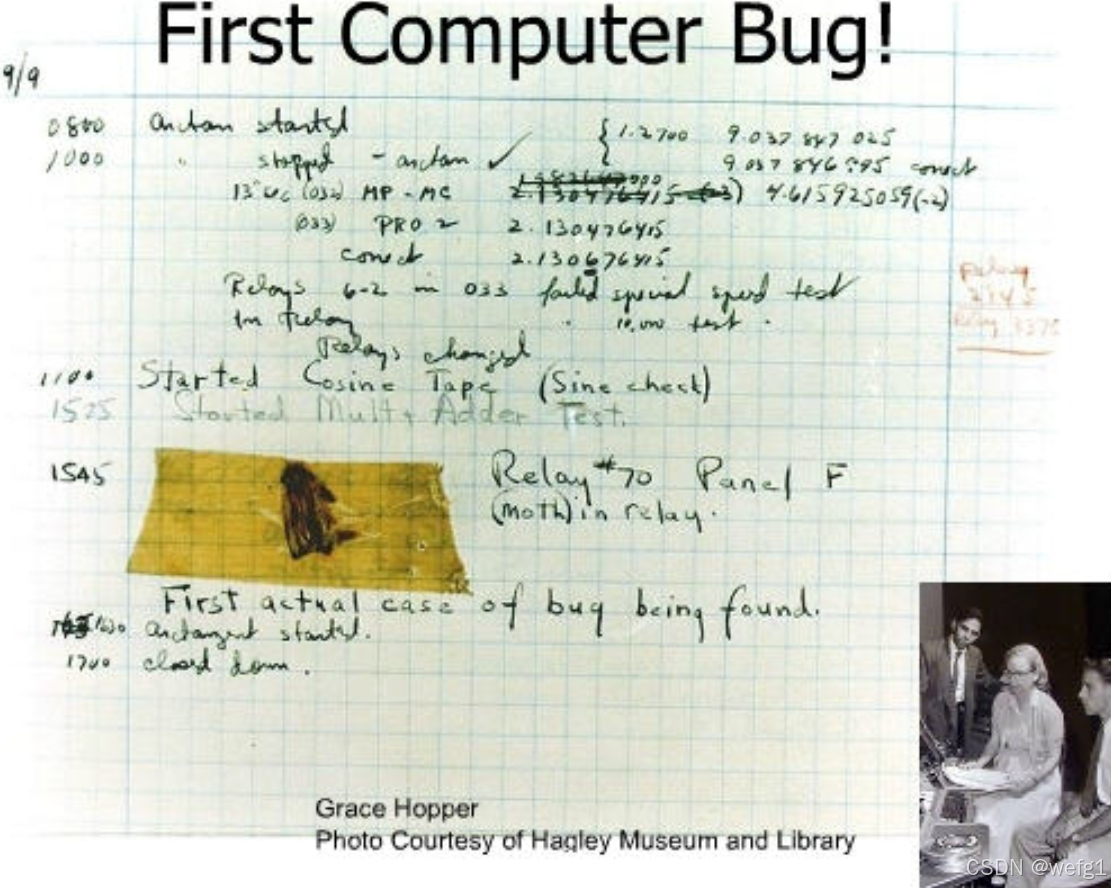 First Computer Bug!
9/9
0800 Antan started
1000 " stopped - antan ✓ { 1.2700 9.037 847 025
9.037 846 995 correct
13"uc (032) MP - MC 2.130476415 4.615925059(-2)
(033) PRO 2 2.130476415
correct 2.130676415
Relays 6-2 in 033 failed special speed test
In relay 10,000 test.
Relay
Relays changed
1100 Started Cosine Tape (Sine check)
1525 Started Mult+ Adder Test.
1545 Relay #70 Panel F
(moth) in relay.
First actual case of bug being found.
1630 antangent started.
1700 closed down.
Grace Hopper
Photo Courtesy of Hagley Museum and Library
CSDN @wefg1